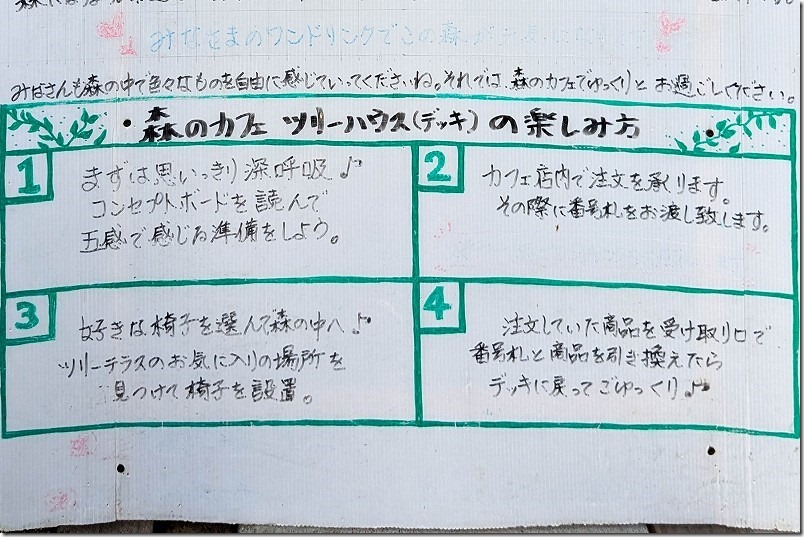 みなさまのワンドリンクでこの森が
みなさんも森の中で色々なものを自由に感じていってくださいね。それでは、森のカフェでゆっくりとお過ごしください。
・森のカフェ ツリーハウス(デッキ)の楽しみ方・
1
まずは思いっきり深呼吸♪
コンセプトボードを読んで
五感で感じる準備をしよう。
2
カフェ店内で注文を承ります。
その際に番号札をお渡し致します。
3
好きな椅子を選んで森の中へ♪
ツリーテラスのお気に入りの場所を
見つけて椅子を設置。
4
注文していた商品を受け取り口で
番号札と商品を引き換えたら
デッキに戻ってごゆっくり♪